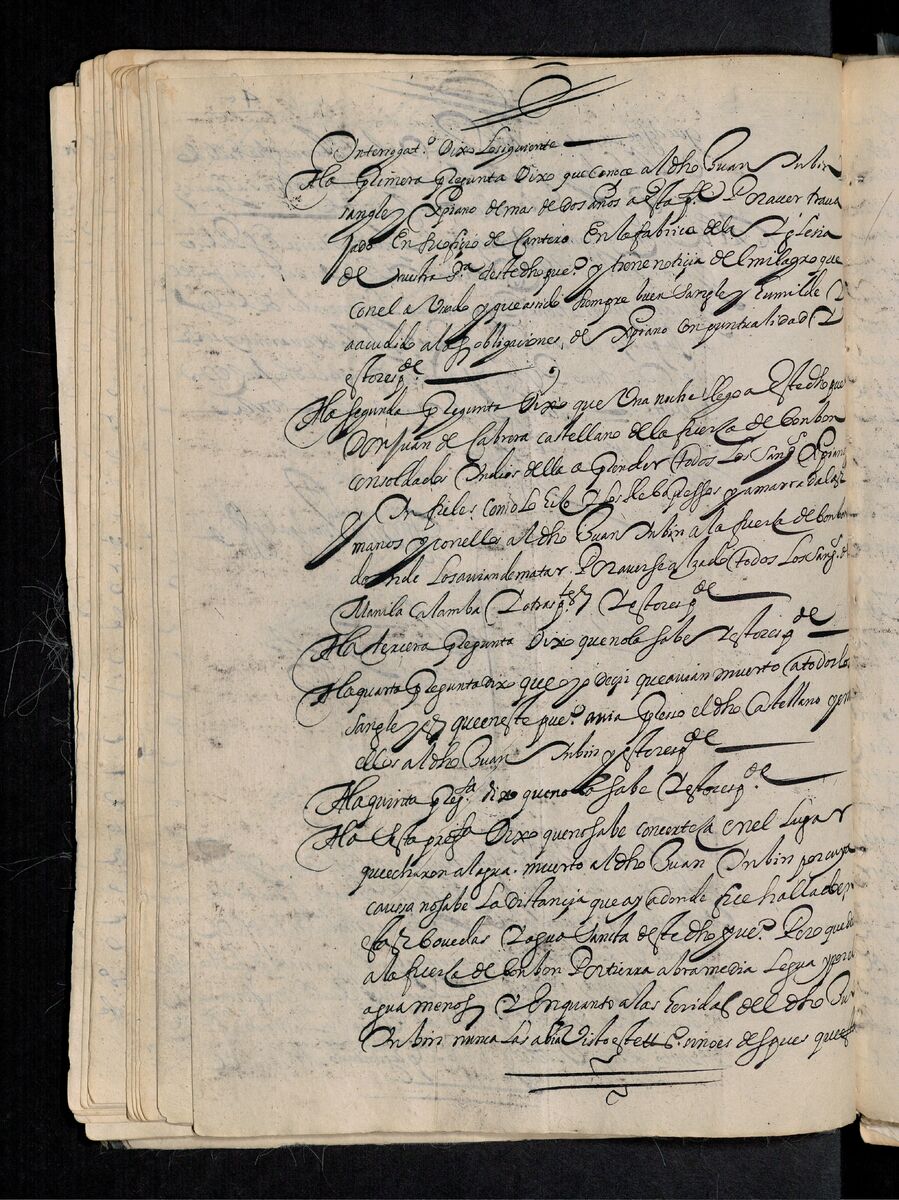 Interrogat.º Dixo Lo siguiente
A la Primera Pregunta Dixo que conoçe al dho Juan Imbin
sangley Xpiano de mas de Dos años a esta p.te Por aver trava
jado En su ofiçio de Cantero En la fabrica de la Yglesia
de nuestra S.ra deste dho pue.º y tiene notiçia del milagro que
con el a Usado y que a sido siempre buen Sangley humilde Y
a acudido a las obligaciones de Xpiano con puntualidad Y
esto resp.de
A la segunda Pregunta Dixo que Una noche llego a Este dho pue
Don Juan de Cabrera castellano de la fuerça de bonbon
con soldados Indios della a prender todos Los Sang.s Xpianos
y Infieles como lo hiço Y Los llebo pressos y amarradas las
manos y con ellos al dho Juan Imbin a la fuerça de bonbon
donde Los avian de matar Por averse alzado todos Los Sang.s de
Manila Calamba Y otras p.tes Y Esto resp.de
A la terçera Pregunta Dixo que no la sabe Y esto resp.de
A la quarta Pregunta dixo que oyo deçir que avian muerto a todos los
sangleyes que en este pue.º avia Preso el dho Castellano y con
ellos al dho Juan Imbin y esto resp.de
A la quinta Preg.ta dixo que no la sabe Y esto resp.de
A la sesta preg.ta Dixo que no sabe con certeça en el Lugar
que echaron al agua muerto al dho Juan Imbin por cuya
caussa no sabe La distançia que ay a donde fue hallado
a las bovedas Y agua Sancta deste dho pue.º Pero que de
a la fuerça de bonbon Por tierra abra media Legua y por el
agua menos Y En quanto a las heridas del dho Juan
Imbin nunca Las abia Visto este t.º sino es despues que